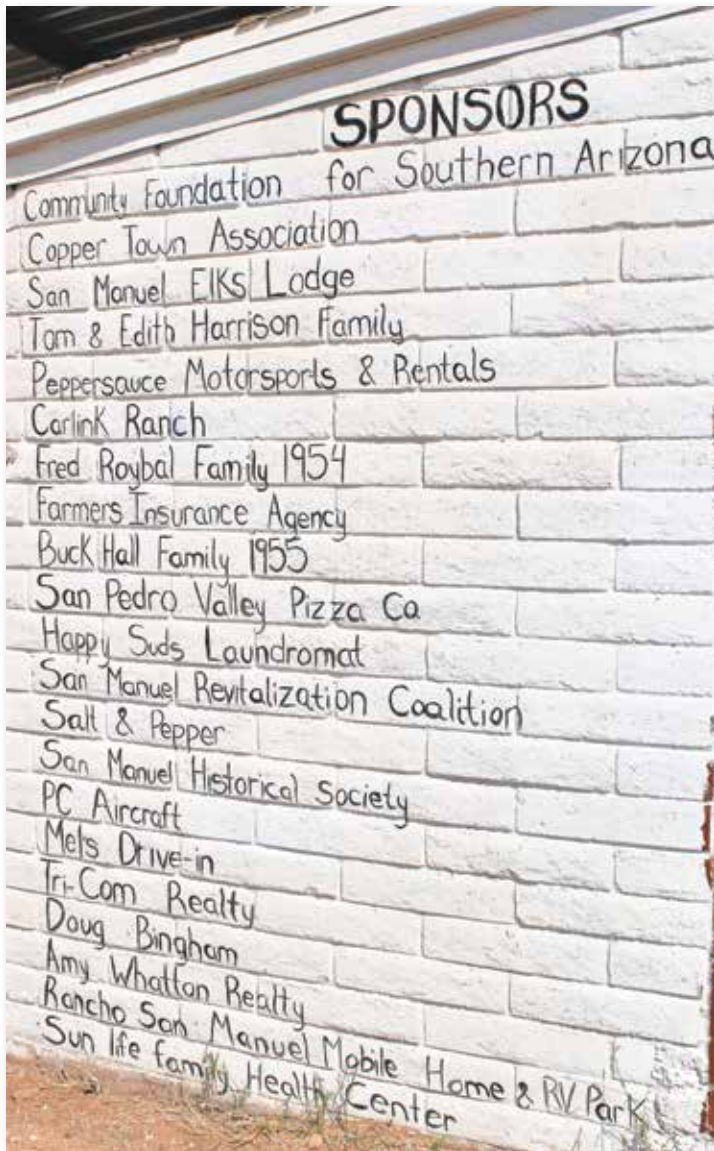 SPONSORS
Community Foundation for Southern Arizona
Copper Town Association
San Manuel Elks Lodge
Tom & Edith Harrison Family
Peppersauce Motorsports & Rentals
Carlink Ranch
Fred Roybal Family 1954
Farmers Insurance Agency
Buck Hall Family 1955
San Pedro Valley Pizza Co
Happy Suds Laundromat
San Manuel Revitalization Coalition
Salt & Pepper
San Manuel Historical Society
PC Aircraft
Mels Drive-in
Tri-Com Realty
Doug Bingham
Amy Whatton Realty
Rancho San Manuel Mobile Home & RV Park
Sun life family Health Center